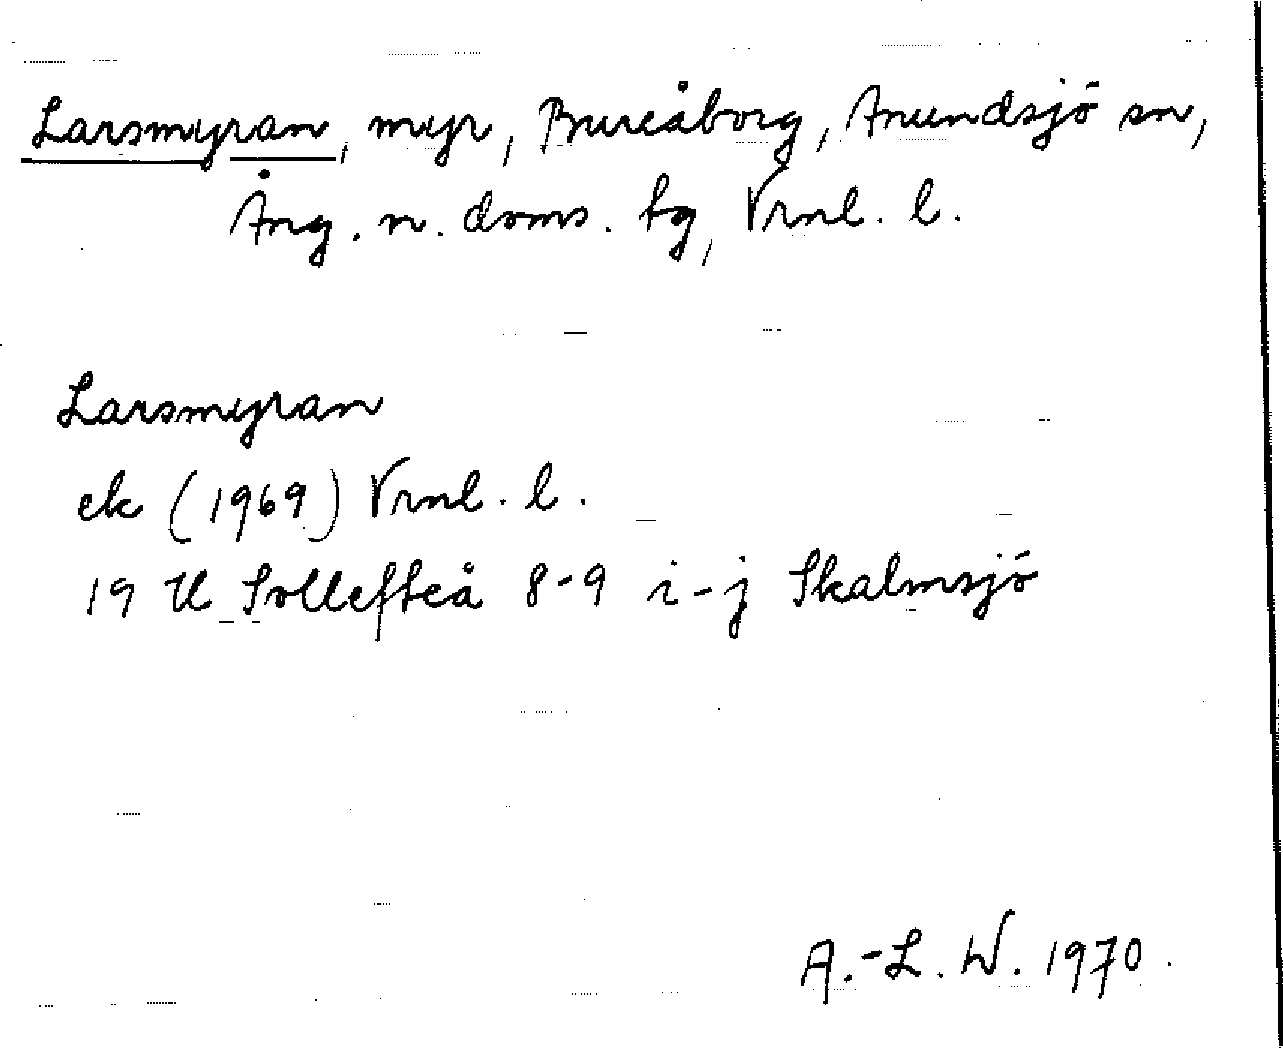 Larsmyran, myr, Bureåborg, Anundsjö sn,
Ång. n. doms. bg, Vrnl. l.
Larsmyran
ek (1969) Vrnl. l.
19 H Sollefteå 8-9 i-j Skalmsjö
A.-L. W. 1970.